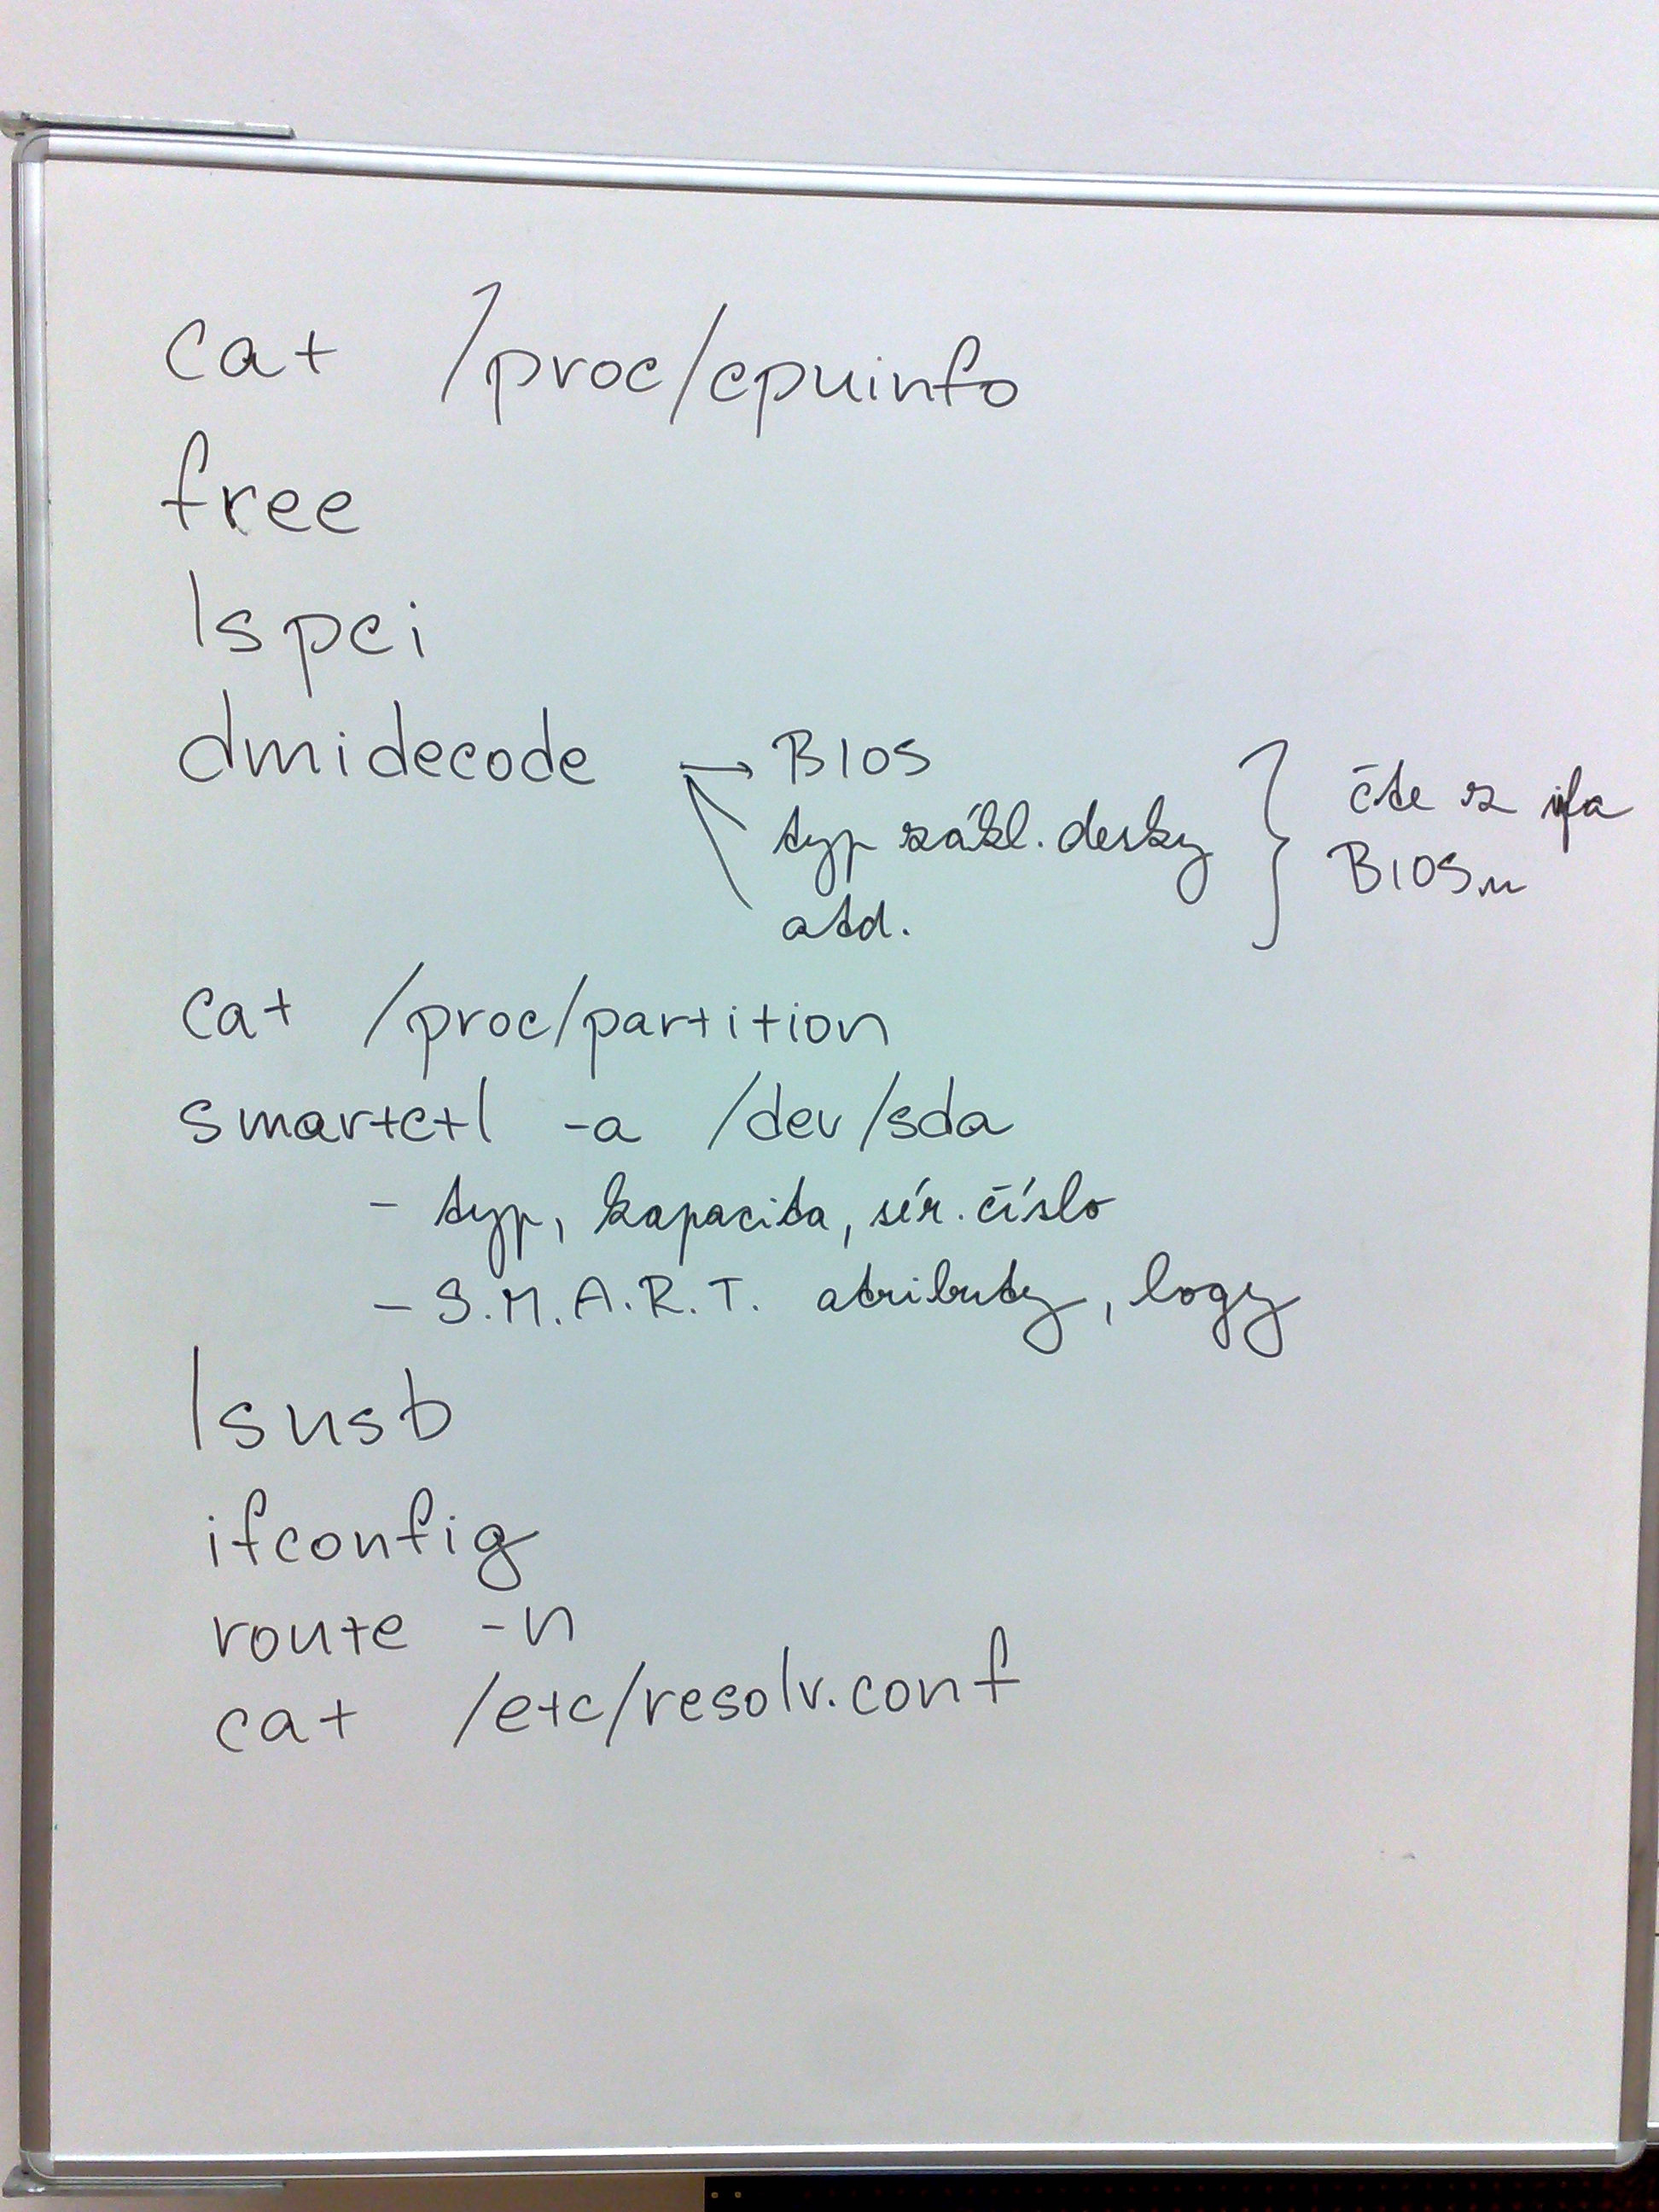 cat /proc/cpuinfo
free
lspci
dmidecode → BIOS
typ zákl. desky
atd.
čte z ifa
BIOSu
cat /proc/partition
smartctl -a /dev/sda
- typ, kapacita, sér. číslo
- S.M.A.R.T. atributy, logy
lsusb
ifconfig
route -n
cat /etc/resolv.conf